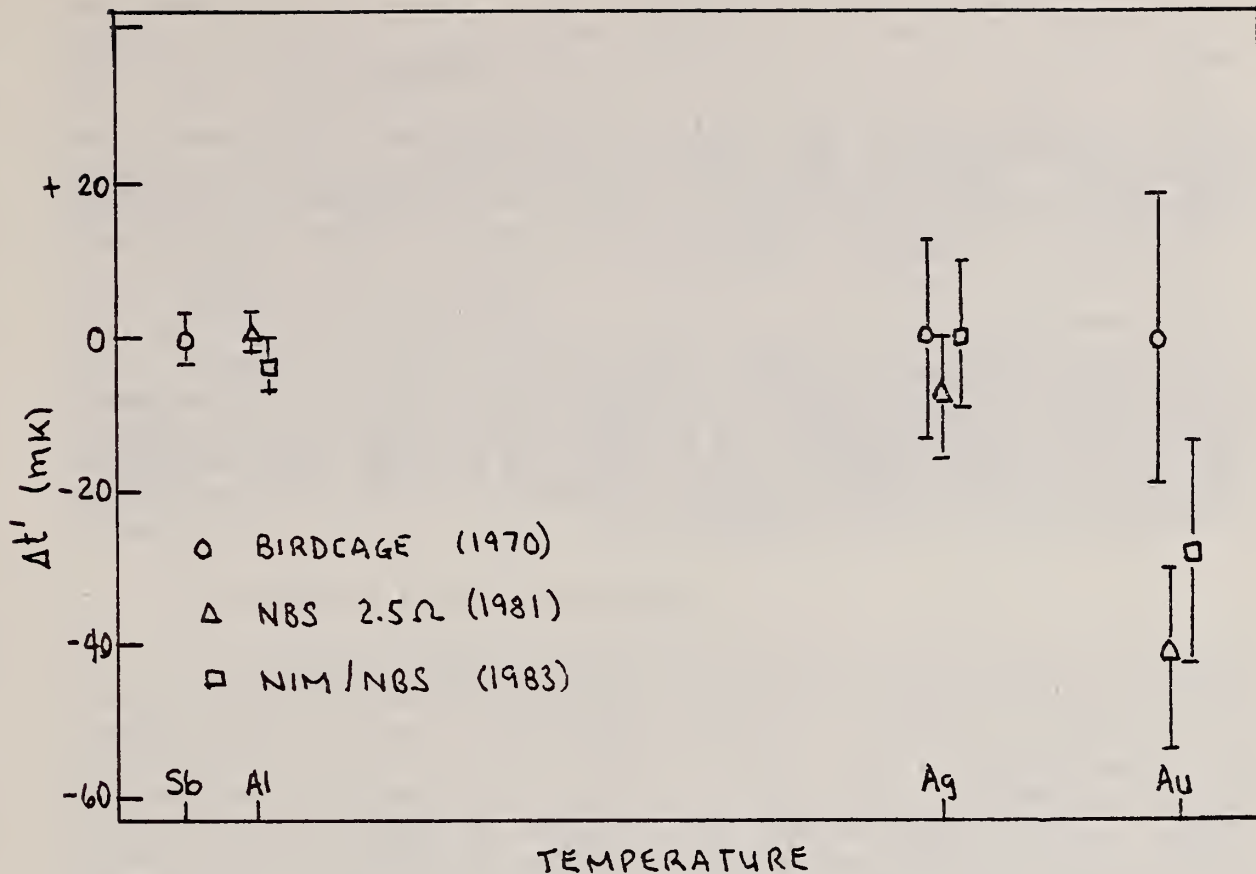 + 20
0
-20
-40
-60
Δt' (mK)
○ BIRDCAGE (1970)
△ NBS 2.5Ω (1981)
□ NIM/NBS (1983)
Sb Al Ag Au
TEMPERATURE